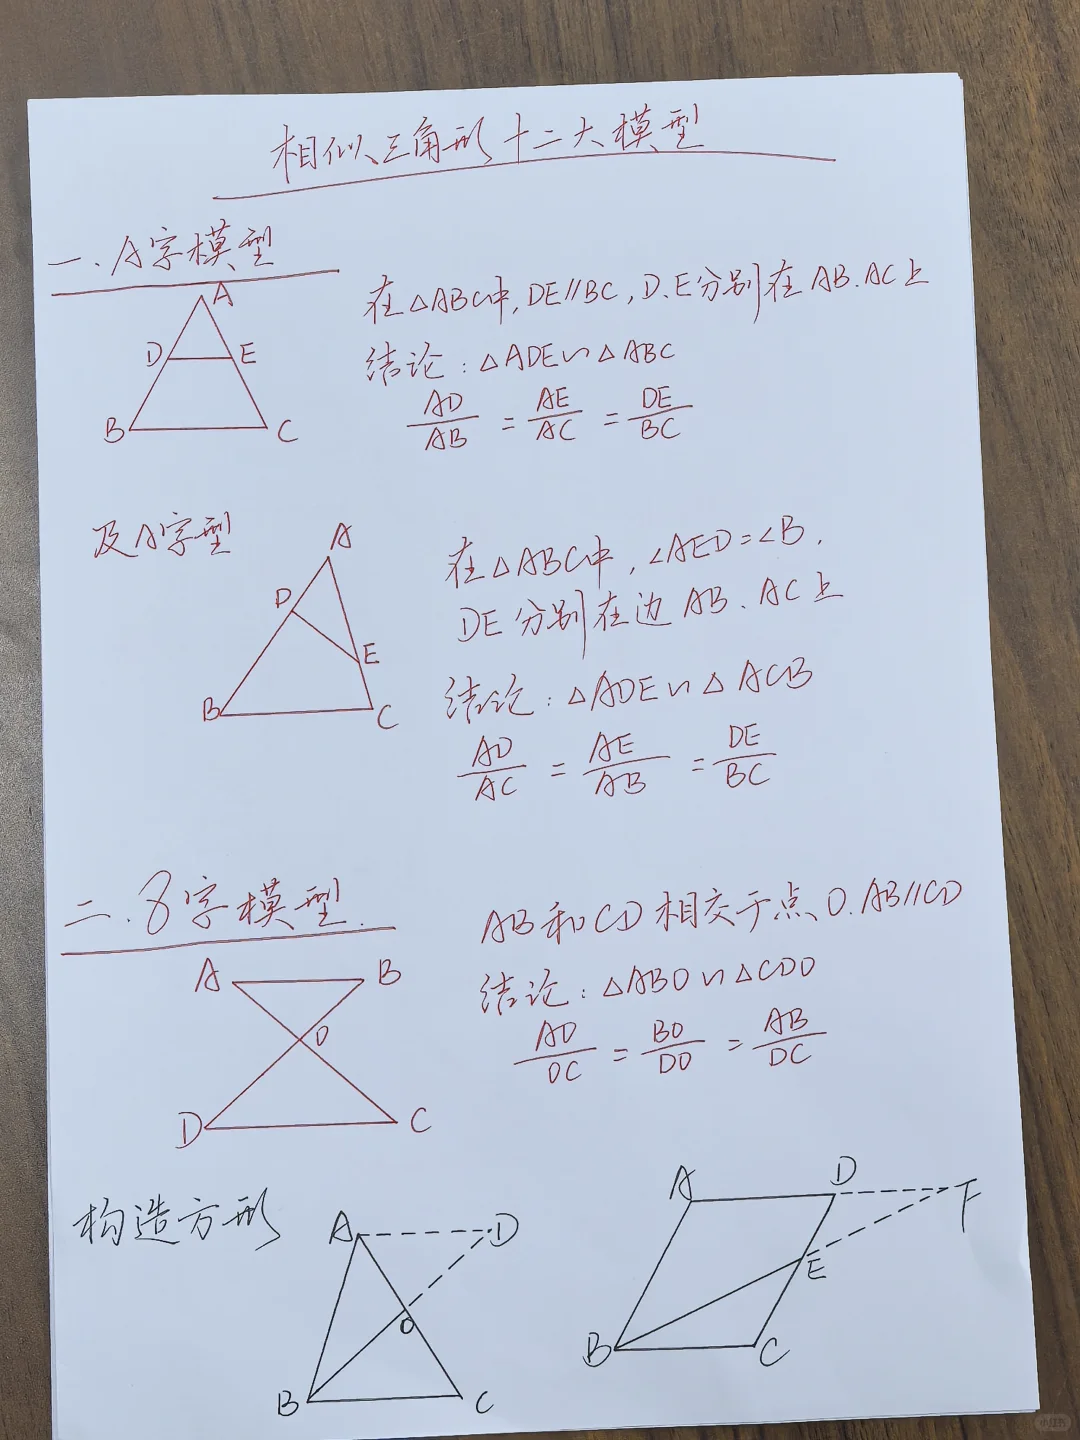 相似三角形十二大模型
一.A字模型
A
D E
B C
在△ABC中,DE∥BC,D.E分别在AB.AC上
结论:△ADE∽△ABC
AD/AB = AE/AC = DE/BC
及A字型
A
D
E
B C
在△ABC中,∠AED=∠B,
DE分别在边AB.AC上
结论:△ADE∽△ACB
AD/AC = AE/AB = DE/BC
二.8字模型.
A B
O
D C
AB和CD相交于点O.AB∥CD
结论:△ABO∽△CDO
AO/OC = BO/DO = AB/DC
构造方形
A D
O
B C
A D F
E
B C
小红书